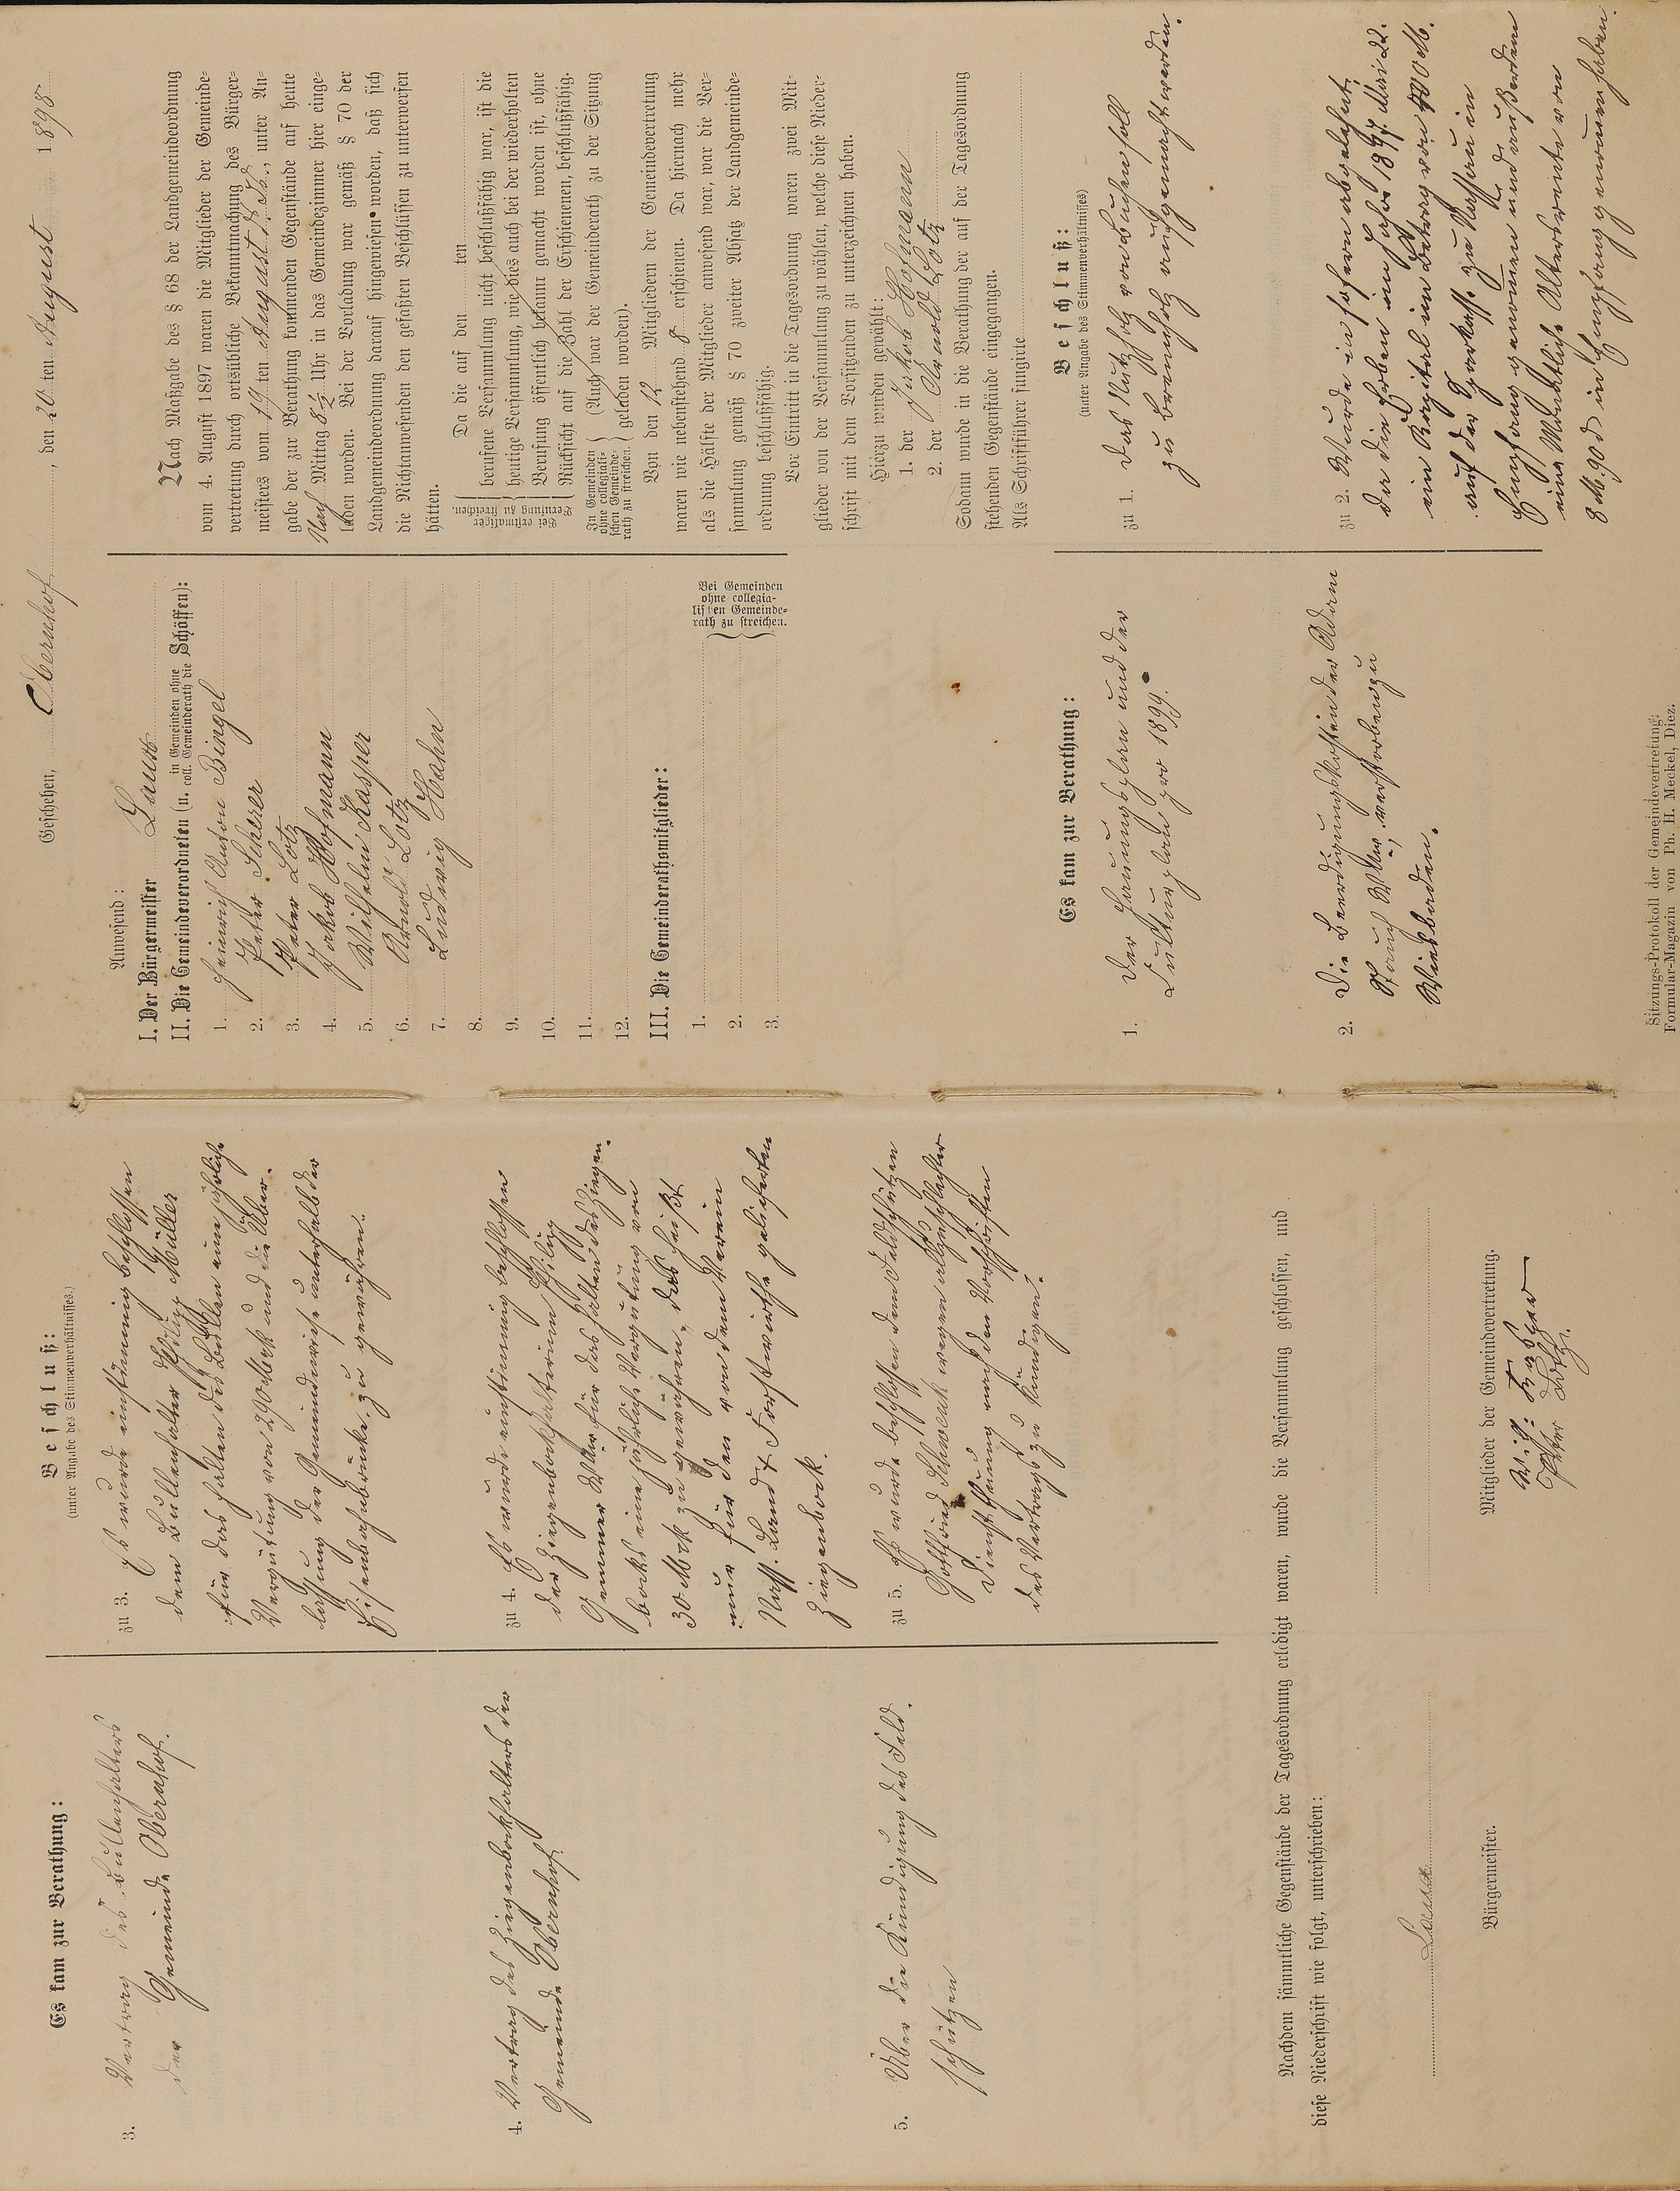 Geschehen, Obernhof, den 20ten August 1898
Anwesend:
I. Der Bürgermeister Laux
II. Die Gemeindeverordneten (u. in Gemeinden ohne coll. Gemeinderath die Schöffen):
1. Heinrich Anton Bingel
2. Peter Scherer
3. Peter Lotz
4. Jakob Hofmann
5. Wilhelm Kasper
6. Arnold Lotz
7. Ludwig Hahn
8.
9.
10.
11.
12.
III. Die Gemeinderathsmitglieder:
1.
2.
3.
Bei Gemeinden
ohne collegia-
lischen Gemeinde-
rath zu streichen.
Nach Maßgabe des § 68 der Landgemeindeordnung
vom 4. August 1897 waren die Mitglieder der Gemeinde-
vertretung durch ortsübliche Bekanntmachung des Bürger-
meisters vom 19 ten August d. Js., unter An-
gabe der zur Berathung kommenden Gegenstände auf heute
Nach Mittag 8½ Uhr in das Gemeindezimmer hier einge-
laden worden. Bei der Vorladung war gemäß § 70 der
Landgemeindeordnung darauf hingewiesen worden, daß sich
die Nichtanwesenden den gefaßten Beschlüssen zu unterwerfen
hätten.
Bei erstmaliger
Berufung zu streichen.
Da die auf den ten
berufene Versammlung nicht beschlußfähig war, ist die
heutige Versammlung, wie dies auch bei der wiederholten
Berufung öffentlich bekannt gemacht worden ist, ohne
Rücksicht auf die Zahl der Erschienenen, beschlußfähig.
In Gemeinden
ohne collegiali-
schen Gemeinde-
rath zu streichen.
(Auch war der Gemeinderath zu der Sitzung
geladen worden).
Von den 12 Mitgliedern der Gemeindevertretung
waren wie nebenstehend 8 erschienen. Da hiernach mehr
als die Hälfte der Mitglieder anwesend war, war die Ver-
sammlung gemäß § 70 zweiter Absatz der Landgemeinde-
ordnung beschlußfähig.
Vor Eintritt in die Tagesordnung waren zwei Mit-
glieder von der Versammlung zu wählen, welche diese Nieder-
schrift mit dem Vorsitzenden zu unterzeichnen haben.
Hierzu wurden gewählt:
1. der Jakob Hofmann
2. der Arnold Lotz
Sodann wurde in die Berathung der auf der Tagesordnung
stehenden Gegenstände eingegangen.
Als Schriftführer fungirte
Es kam zur Berathung:
1. Der Hauungsplan und der
Culturplan pro 1899.
2. Die Beerdigungskosten der Adam
Wiesbaden.
Beschluß:
(unter Angabe des Stimmenverhältnisses)
zu 1. Das Nutzholz von Buchen soll
zu Brennholz aufgemacht werden.
zu 2. Wurde in sofern abgelehnt,
da die Erben im Jahr 1897 Mai 22.
ein Kapital im Betrag von 70 M.
auf der Sparkasse zu Nassau in
Empfang genommen und außerdem
eine Monatliche Altersrente von
8 M. 90 d in Empfang genommen haben.
Sitzungs-Protokoll der Gemeindevertretung:
Formular-Magazin von Ph. H. Meckel, Diez.
Es kam zur Berathung:
3. Vertrag des Bullenhalters
der Gemeinde Obernhof.
4. Vertrag des Ziegenbockhalters der
Gemeinde Obernhof
5. Über die Kündigung des Feld-
schützen
Beschluß:
(unter Angabe des Stimmenverhältnisses.)
zu 3. Es wurde einstimmig beschlossen
dem Bullenhalter Philipp Müller
für das Halten des Bullen eine jährliche
Vergütung von 290 Mrk und die Über-
lassung der Gemeindewiese unterhalb der
Eisenbahnbrücke zu gewähren.
zu 4. Es wurde einstimmig beschlossen
der Ziegenbockhalterin Philipp
Gemmer Ww. für das Halten des Ziegen-
bocks eine jährliche Vergütung von
30 Mrk zu gewähren, das heißt
nur für den von dem Verein
Nass. Land & Forstwirthe gelieferten
Ziegenbock.
zu 5. Es wurde beschlossen dem Feldschützen
Gottfried Schwenk wegen allzuschlechter
Dienstführung nach den Vorschriften
des Vertrags zu kündigen.
Nachdem sämmtliche Gegenstände der Tagesordnung erledigt waren, wurde die Versammlung geschlossen, und
diese Niederschrift wie folgt, unterschrieben:
Laux
Bürgermeister.
Mitglieder der Gemeindevertretung.
Wilh: Kasper
Peter Lotz.